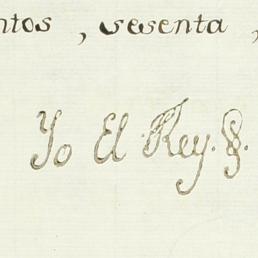 ntos, sesenta,
Yo El Rey.